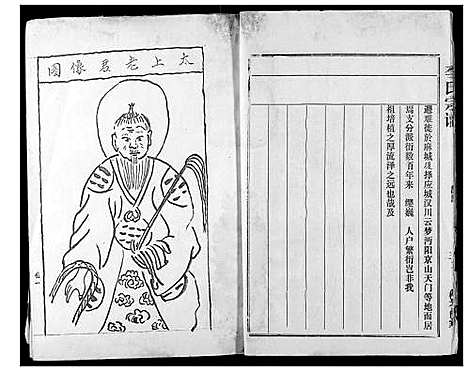 李氏宗谱
避难徙於麻城後择应城汉川云梦沔阳京山天门等地而居
焉支分派衍数百年来 缨巍 人户繁衍岂非我
祖培植之厚流泽之远也哉及
太上老君像图